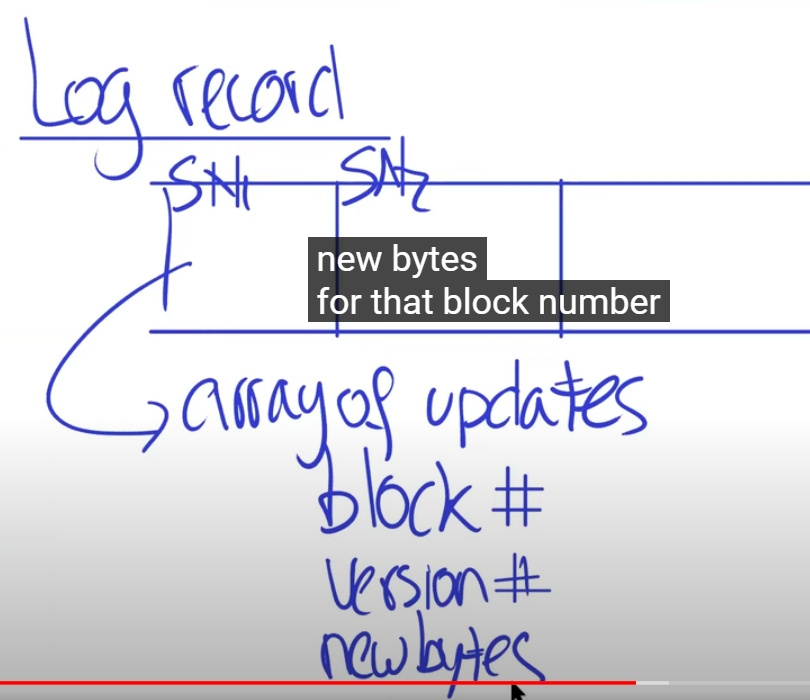 Log record
SN1 SN2
new bytes
for that block number
array of updates
block #
version #
new bytes